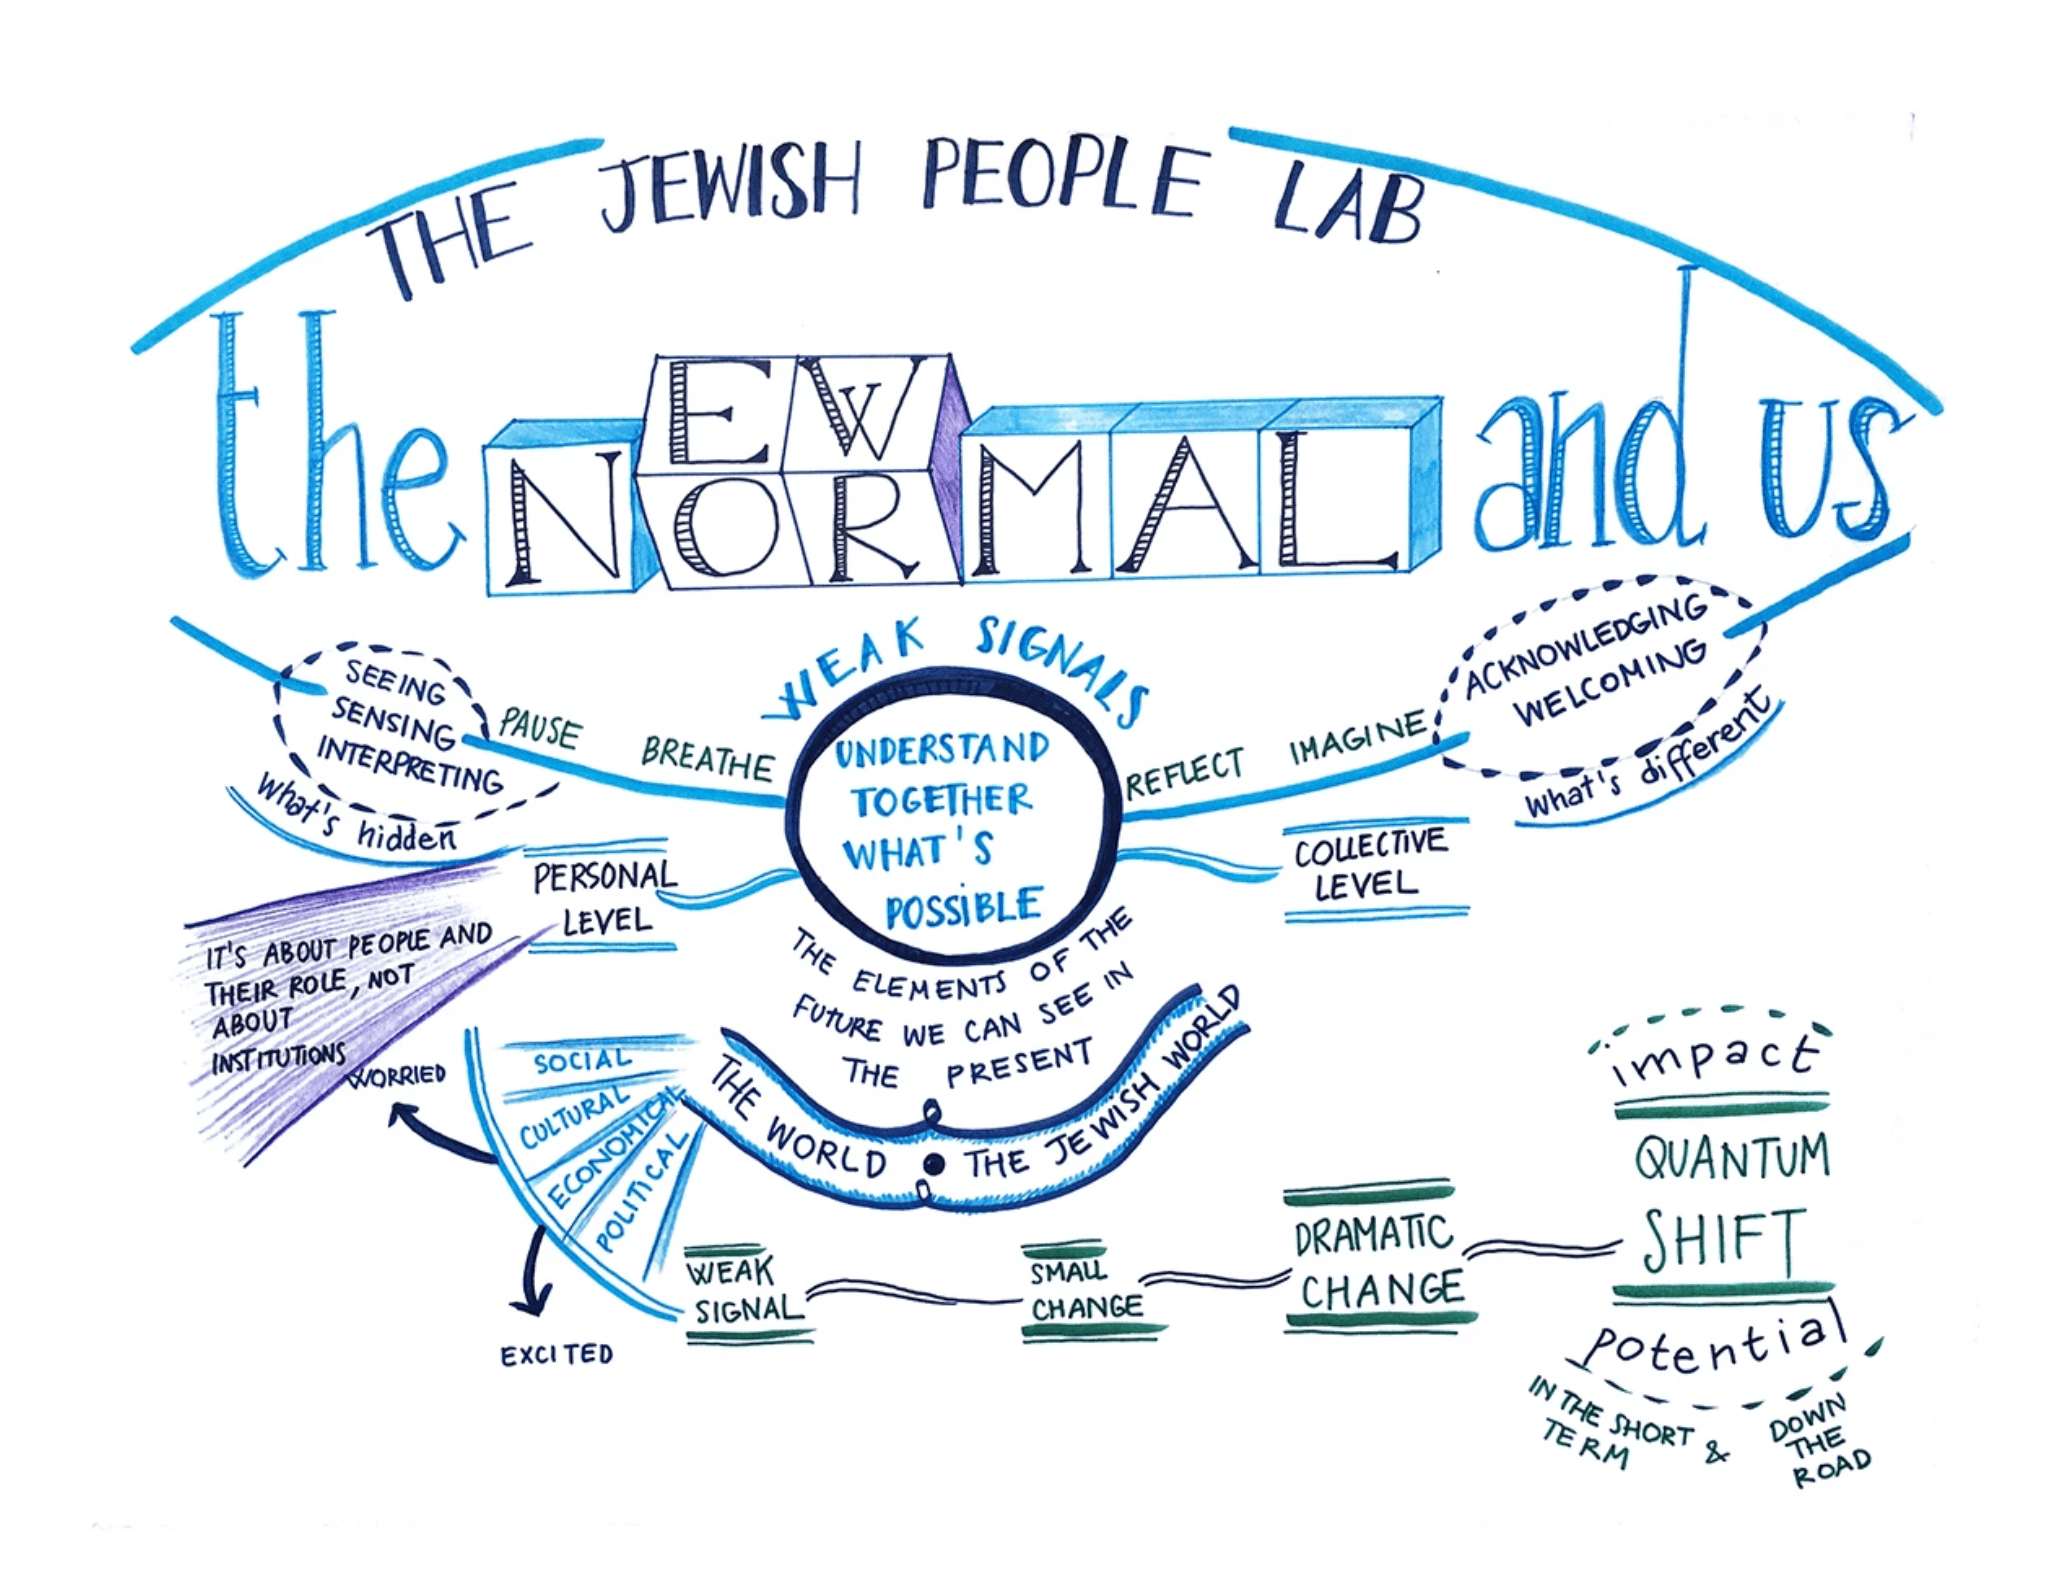 THE JEWISH PEOPLE LAB
EW
the NORMAL and us
WEAK SIGNALS
SEEING
SENSING
INTERPRETING
What's hidden
PAUSE BREATHE
UNDERSTAND
TOGETHER
WHAT'S
POSSIBLE
REFLECT IMAGINE
ACKNOWLEDGING
WELCOMING
What's different
PERSONAL
LEVEL
COLLECTIVE
LEVEL
IT'S ABOUT PEOPLE AND
THEIR ROLE, NOT
ABOUT
INSTITUTIONS
THE ELEMENTS OF THE
FUTURE WE CAN SEE IN
THE PRESENT
THE WORLD • THE JEWISH WORLD
WORRIED
SOCIAL
CULTURAL
ECONOMICAL
POLITICAL
EXCITED
WEAK
SIGNAL
SMALL
CHANGE
DRAMATIC
CHANGE
impact
QUANTUM
SHIFT
potential
IN THE SHORT
TERM
&
DOWN
THE
ROAD